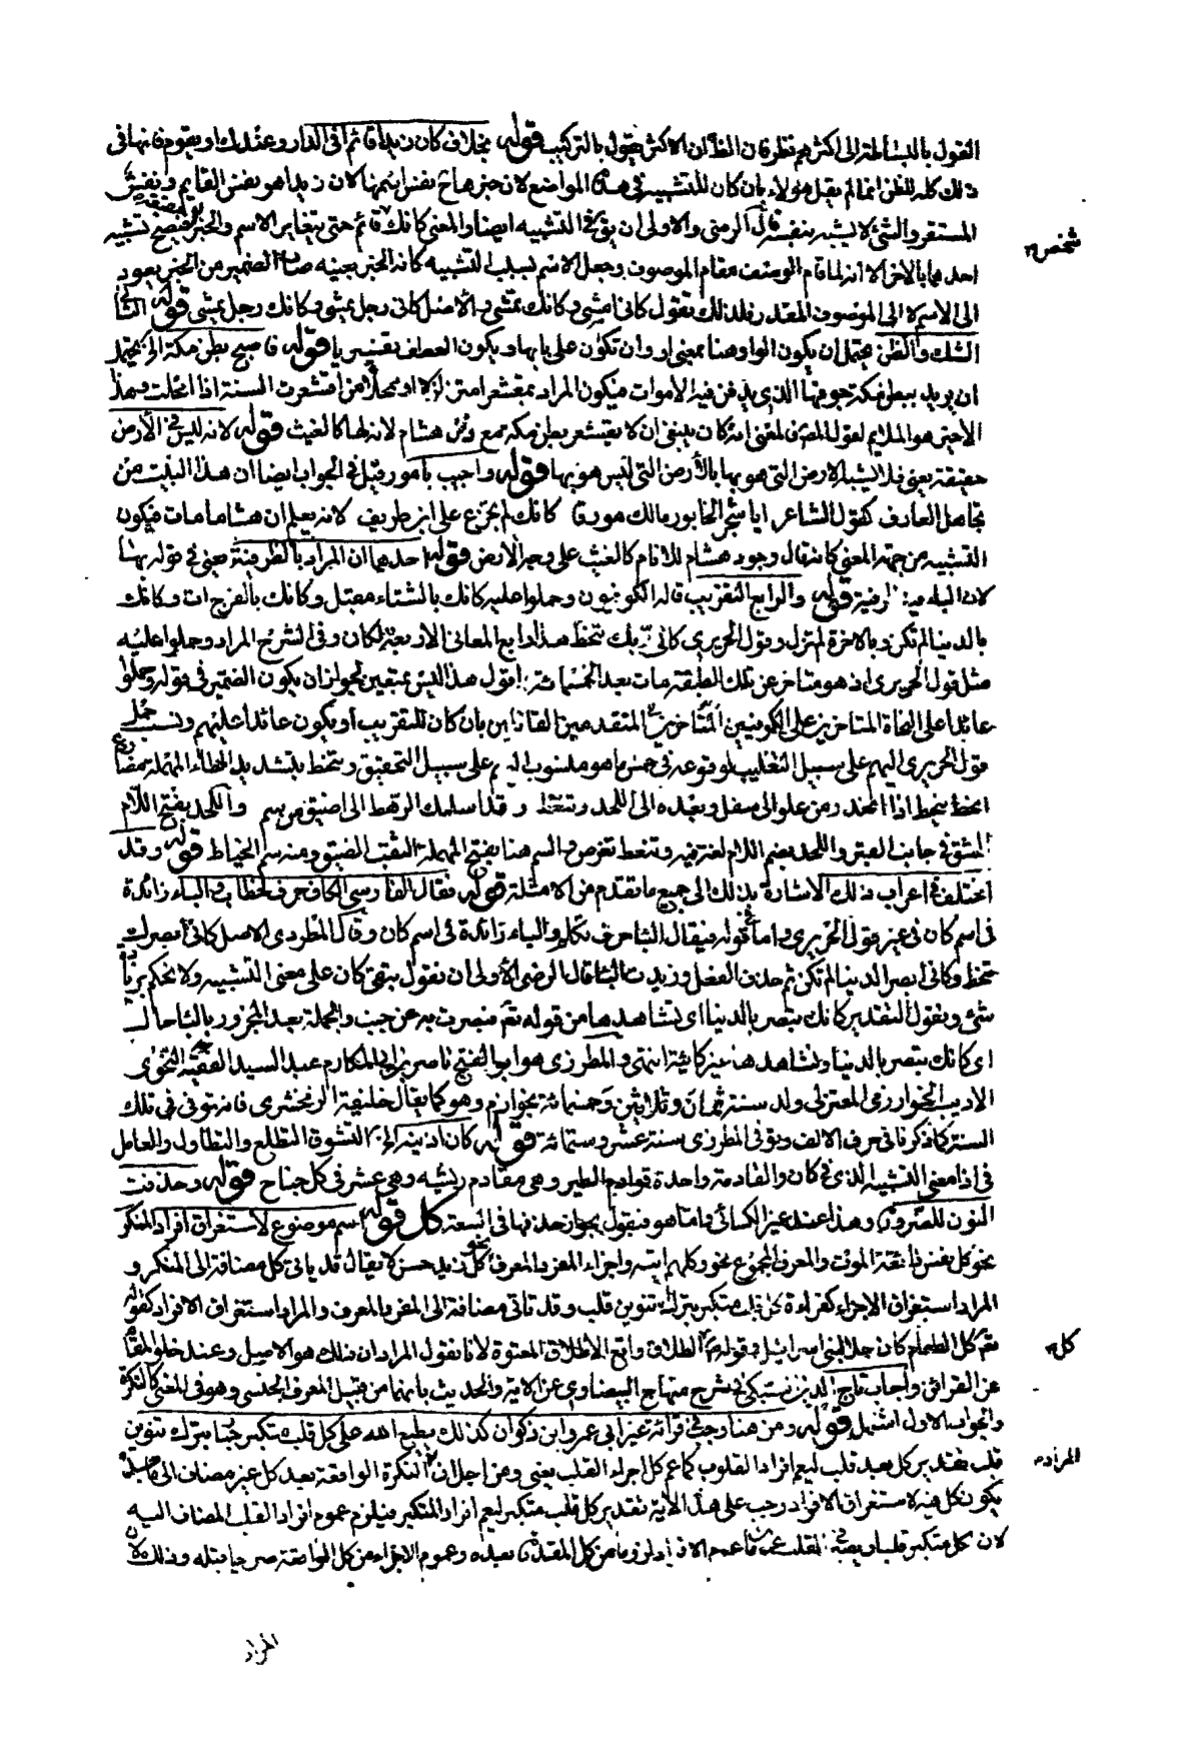 القول بالبساطة الى اكثرهم نظر فان الظأن الاكثر يقول بالتركيب قوله بخلاف كان زيدا قائم او في الدار او عندك او يقوم فانها في
ذلك كله للظن انما لم يقل هولاء بان كان للتشبيه في هذه المواضع لان خبرها نفس اسمها لان زيدا هو نفس القايم ونفس
المستقر والشئ لا يشبه بنفسه قال الرضى والاولى ان يق في التشبيه ايضا والمعنى كانك قائم حتى يتغاير الاسم والخبر فيصح تشبيه
شخص
احدهما بالاخر الا انه لما قام الوصف مقام الموصوف وجعل الاسم بسبب التشبيه كانه الخبر بعينه صار الضمير من الخبر يعود
الى الاسم لا الى الموصوف المقدر فلذلك تقول كانى امشى وكانك تمشى والأصل كانى رجل يمشى وكانك رجل يمشى قوله الثالث
الشك والظن يحتمل ان يكون الواو هنا بمعنى او وان تكون على بابها ويكون العطف تفسيريا قوله فاصبح بطن مكة الخ يحتمل
ان يريد ببطن مكة جوفها الذى يدفن فيه الاموات فيكون المراد بمقشعر امتزلزلا او ممحلا من اقشعرت السنة اذا امحلت وهذا
الأخير هو الملايم لقول المصنف لمعنى انه كان ينبغى ان لا يقشعر بطن مكة مع دفن هشام لانه لها كالغيث قوله لانه ليس في الأرض
حقيقة يعنى فلا يشبه الارض التى هو بها بالأرض التى ليس هو بها قوله واجيب بأمور قيل في الجواب ايضا ان هذا البيت من
تجاهل العارف كقول الشاعر ايا شجر الخابور مالك مورقا كانك لم تجزع على ابن طريف لانه يعلم ان هشاما مات فيكون
التشبيه من جهة المعنى كانه قال وجود هشام للانام كالغيث على وجه الارض قوله احدهما ان المراد بالظرفية يعنى في قوله بها
لان الباء فيه ظرفية قوله والرابع التقريب قاله الكوفيون وحملوا عليه كانك بالشتاء مقبل وكانك بالفرج ات وكانك
بالدنيا لم تكن وبالاخرة لم تزل وقول الحريرى كانى بك تنحط هذا رابع المعانى الاربعة لكان وفى الشرح المراد وحملوا عليه
مثل قول الحريرى اذ هو متاخر عن تلك الطبقة مات بعد الخمسمائة اقول هذا ليس بمتعين لجواز ان يكون الضمير في قوله وحملوا
عائدا على النحاة المتاخرين على الكوفيين المتأخرين المتقدمين القائلين بان كان للتقريب او يكون عائدا عليهم ونسب حمل
قول الحريرى اليهم على سبيل التغليب لوقوعه في جنس ما هو منسوب اليهم على سبيل التحقيق وتنحط بتشديد الطاء المهملة مضارع
انحط ينحط اذا انحدر من علو الى سفل وبعده الى اللحد وتنغط وقد اسلمك الرهط الى اضيق من سم واللحد بفتح اللام
الشق في جانب القبر واللحد بضم اللام لغة فيه وتنغط تغوص والسم هنا بفتح المهملة الثقب الضيق ومنه سم الخياط قوله وقد
اختلف في اعراب ذلك الاشارة بذلك الى جميع ما تقدم من الامثلة قوله فقال الفارسى الكاف حرف خطاب والباء زائدة
في اسم كان في غير قول الحريرى واما في قوله فيقال اليا حرف تكلم والباء زائدة في اسم كان وقال المطرزى الاصل كانى ابصرك
تنحط وكانى ابصر الدنيا لم تكن ثم حذف الفعل وزيدت الباء قال الرضى الأولى ان نقول ببقى كان على معنى التشبيه ولا نحكم بزيادة
شئ ونقول التقدير كانك تبصر بالدنيا اى تشاهدها من قوله تعم فبصرت به عن جنب والجملة بعد المجرور بالبا حال
اى كانك تبصر بالدنيا وتشاهدها غير كائنة انتهى والمطرزى هو ابو الفتح ناصر بن ابى المكارم عبد السيد الفقيه النحوى
الاديب الخوارزمى المعتزلى ولد سنة ثمان وثلاثين وخمسمائة بخوارزم وهو كما يقال خليفة الزمخشرى فانه توفى في تلك
السنة كما ذكرنا في حرف الالف وتوفى المطرزى سنة عشر وستمائة قوله كان اذنيه الخ التشوق التطلع والتطاول والعامل
في اذا معنى التشبيه الذى في كان والقادمة واحدة قوادم الطير وهى مقادم ريشه وهى عشر في كل جناح قوله وحذفت
النون للضرورة وهذا عند غير الكسائى واما هو فيقول بجواز حذفها في السعة كل قوله اسم موضوع لاستغراق افراد المنكر
نحو كل نفس ذائقة الموت والمعرف المجموع نحو وكلهم اتيه واجزاء المفرد المعرف نحو كل زيد حسن لا يقال قد ياتى كل مضافة الى المنكر و
المراد استغراق الاجزاء كقراءة كل قلب متكبر بترك تنوين قلب وقد تاتى مضافة الى المفرد المعرف والمراد استغراق الافراد كقوله
تعم كل الطعام كان حلا لبنى اسرائيل وقوله م الطلاق واقع الا طلاق المعتوه لانا نقول المراد ان ذلك هو الاصل وعند خلو المقام
كل
عن القرائن واجاب تاج الدين السبكى في شرح منهاج البيضاوى عن الاية والحديث بانهما من قبيل المعرف الجنسى وهو في المعنى كالنكرة
والجواب الاول اشمل قوله ومن هنا وجب في قرائة غير ابى عمرو وابن ذكوان كذلك يطبع الله على كل قلب متكبر جبار بترك تنوين
قلب تقدير كل بعد قلب ليعم افراد القلوب كما عم كل اجزاء القلب يعنى ومن اجل ان النكرة الواقعة بعد كل غير مضاف الى ما بعده
المراد
يكون كل فيه لاستغراق الافراد وجب على هذه الآية تقدير كل قلب متكبر ليعم افراد المتكبر فيلزم عموم افراد القلب المضاف اليه
لان كل متكبر قلبا وعموم الافراد لزوما من كل المقدرة بعده وعموم الاجزاء من كل الواقعة صريحا قبله وذلك لان
المراد